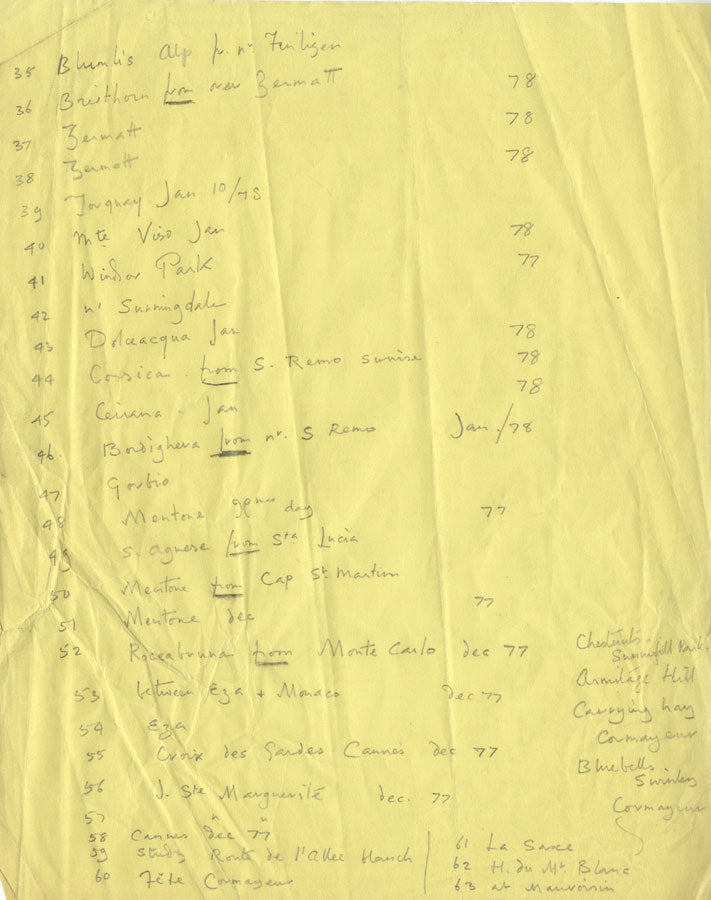 35 Blumlis Alp fr. nr Frutigen
36 Breithorn from over Zermatt 78
37 Zermatt 78
38 Zermatt 78
39 Torquay Jan 10/78
40 Mte Viso Jan 78
41 Windsor Park 77
42 nr Sunningdale
43 Dolceacqua Jan 78
44 Corsica . from S. Remo sunrise 78
45 Ceriana . Jan 78
46. Bordighera from nr. S Remo Jan./78
47 Gorbio
48 Mentone Xmas day 77
49 S. Agnese from Sta Lucia
50 Mentone from Cap St Martin
51 Mentone dec 77
52 Roccabruna from Monte Carlo dec 77
53 between Eza + Monaco dec 77
54 Eza
55 Croix des Gardes Cannes dec 77
56 I. Ste Marguerite dec. 77
57 " "
58 Cannes dec 77
59 Study Route de l'Allée Blanch
60 Fête Cormayeur
61 La Saxe
62 H. du Mt Blanc
63 at Mauvoisin
Chestnuts.
Sunninghill Park.
Armitage Hill
Carrying hay
Cormayeur
Bluebells.
Swinley
Cormayeur